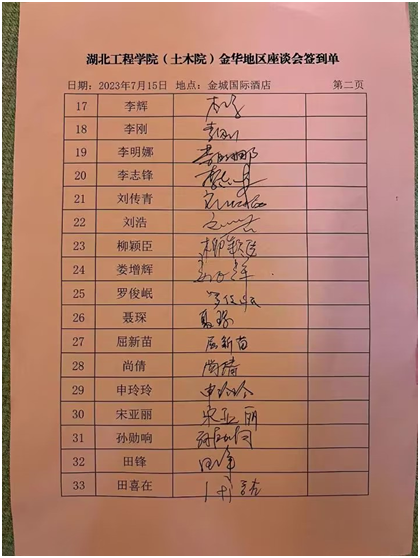 湖北工程学院（土木院）金华地区座谈会签到单
日期：2023年7月15日 地点：金城国际酒店 第二页
17 李辉
18 李刚
19 李明娜 李明娜
20 李志锋
21 刘传青
22 刘浩
23 柳颖臣 柳颖臣
24 娄增辉
25 罗俊岷
26 聂琛 聂琛
27 屈新苗 屈新苗
28 尚倩 尚倩
29 申玲玲 申玲玲
30 宋亚丽 宋亚丽
31 孙勋响
32 田锋 田锋
33 田喜在